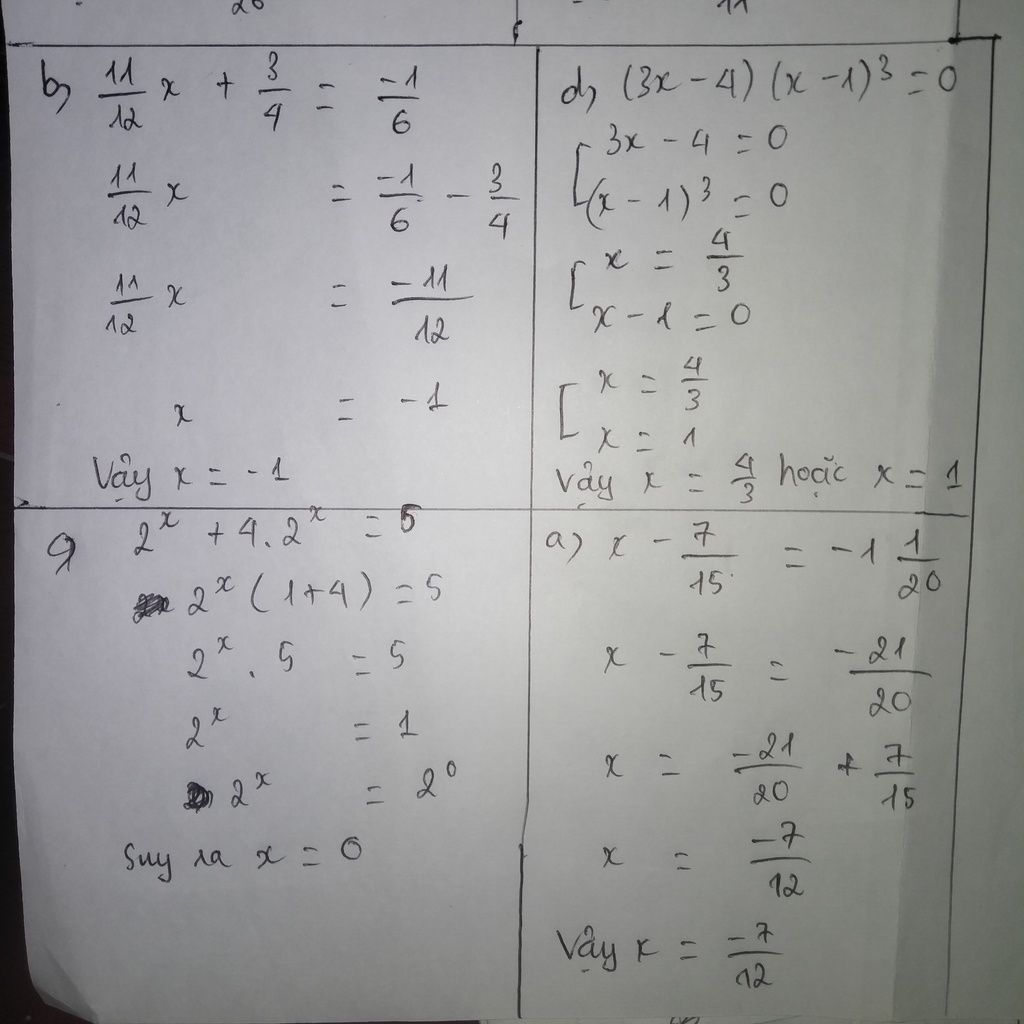 20
11
b) 11/12 x + 3/4 = -1/6
11/12 x = -1/6 - 3/4
11/12 x = -11/12
x = -1
Vậy x = -1
d) (3x - 4) (x - 1)³ = 0
[ 3x - 4 = 0
(x - 1)³ = 0
[ x = 4/3
x - 1 = 0
[ x = 4/3
x = 1
Vậy x = 4/3 hoặc x = 1
2^x + 4. 2^x = 5
2^x (1+4) = 5
2^x . 5 = 5
2^x = 1
2^x = 2^0
Suy ra x = 0
a) x - 7/15 = -1 1/20
x - 7/15 = -21/20
x = -21/20 + 7/15
x = -7/12
Vậy x = -7/12